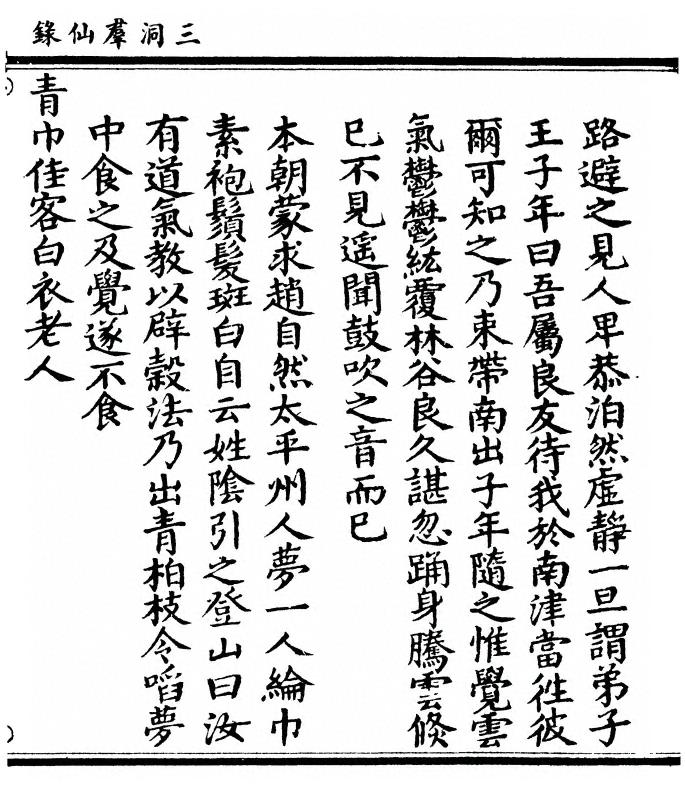 三洞羣仙錄
路避之見人卑恭泊然虛靜一旦謂弟子
王子年曰吾屬良友待我於南津當徃彼
爾可知之乃束帶南出子年隨之惟覺雲
氣鬱鬱紘覆林谷良久諶忽踊身騰雲倏
巳不見遥聞鼓吹之音而巳
本朝蒙求趙自然太平州人夢一人綸巾
素袍鬚髮斑白自云姓陰引之登山曰汝
有道氣教以辟穀法乃出青柏枝令㗖夢
中食之及覺遂不食
青巾佳客白衣老人